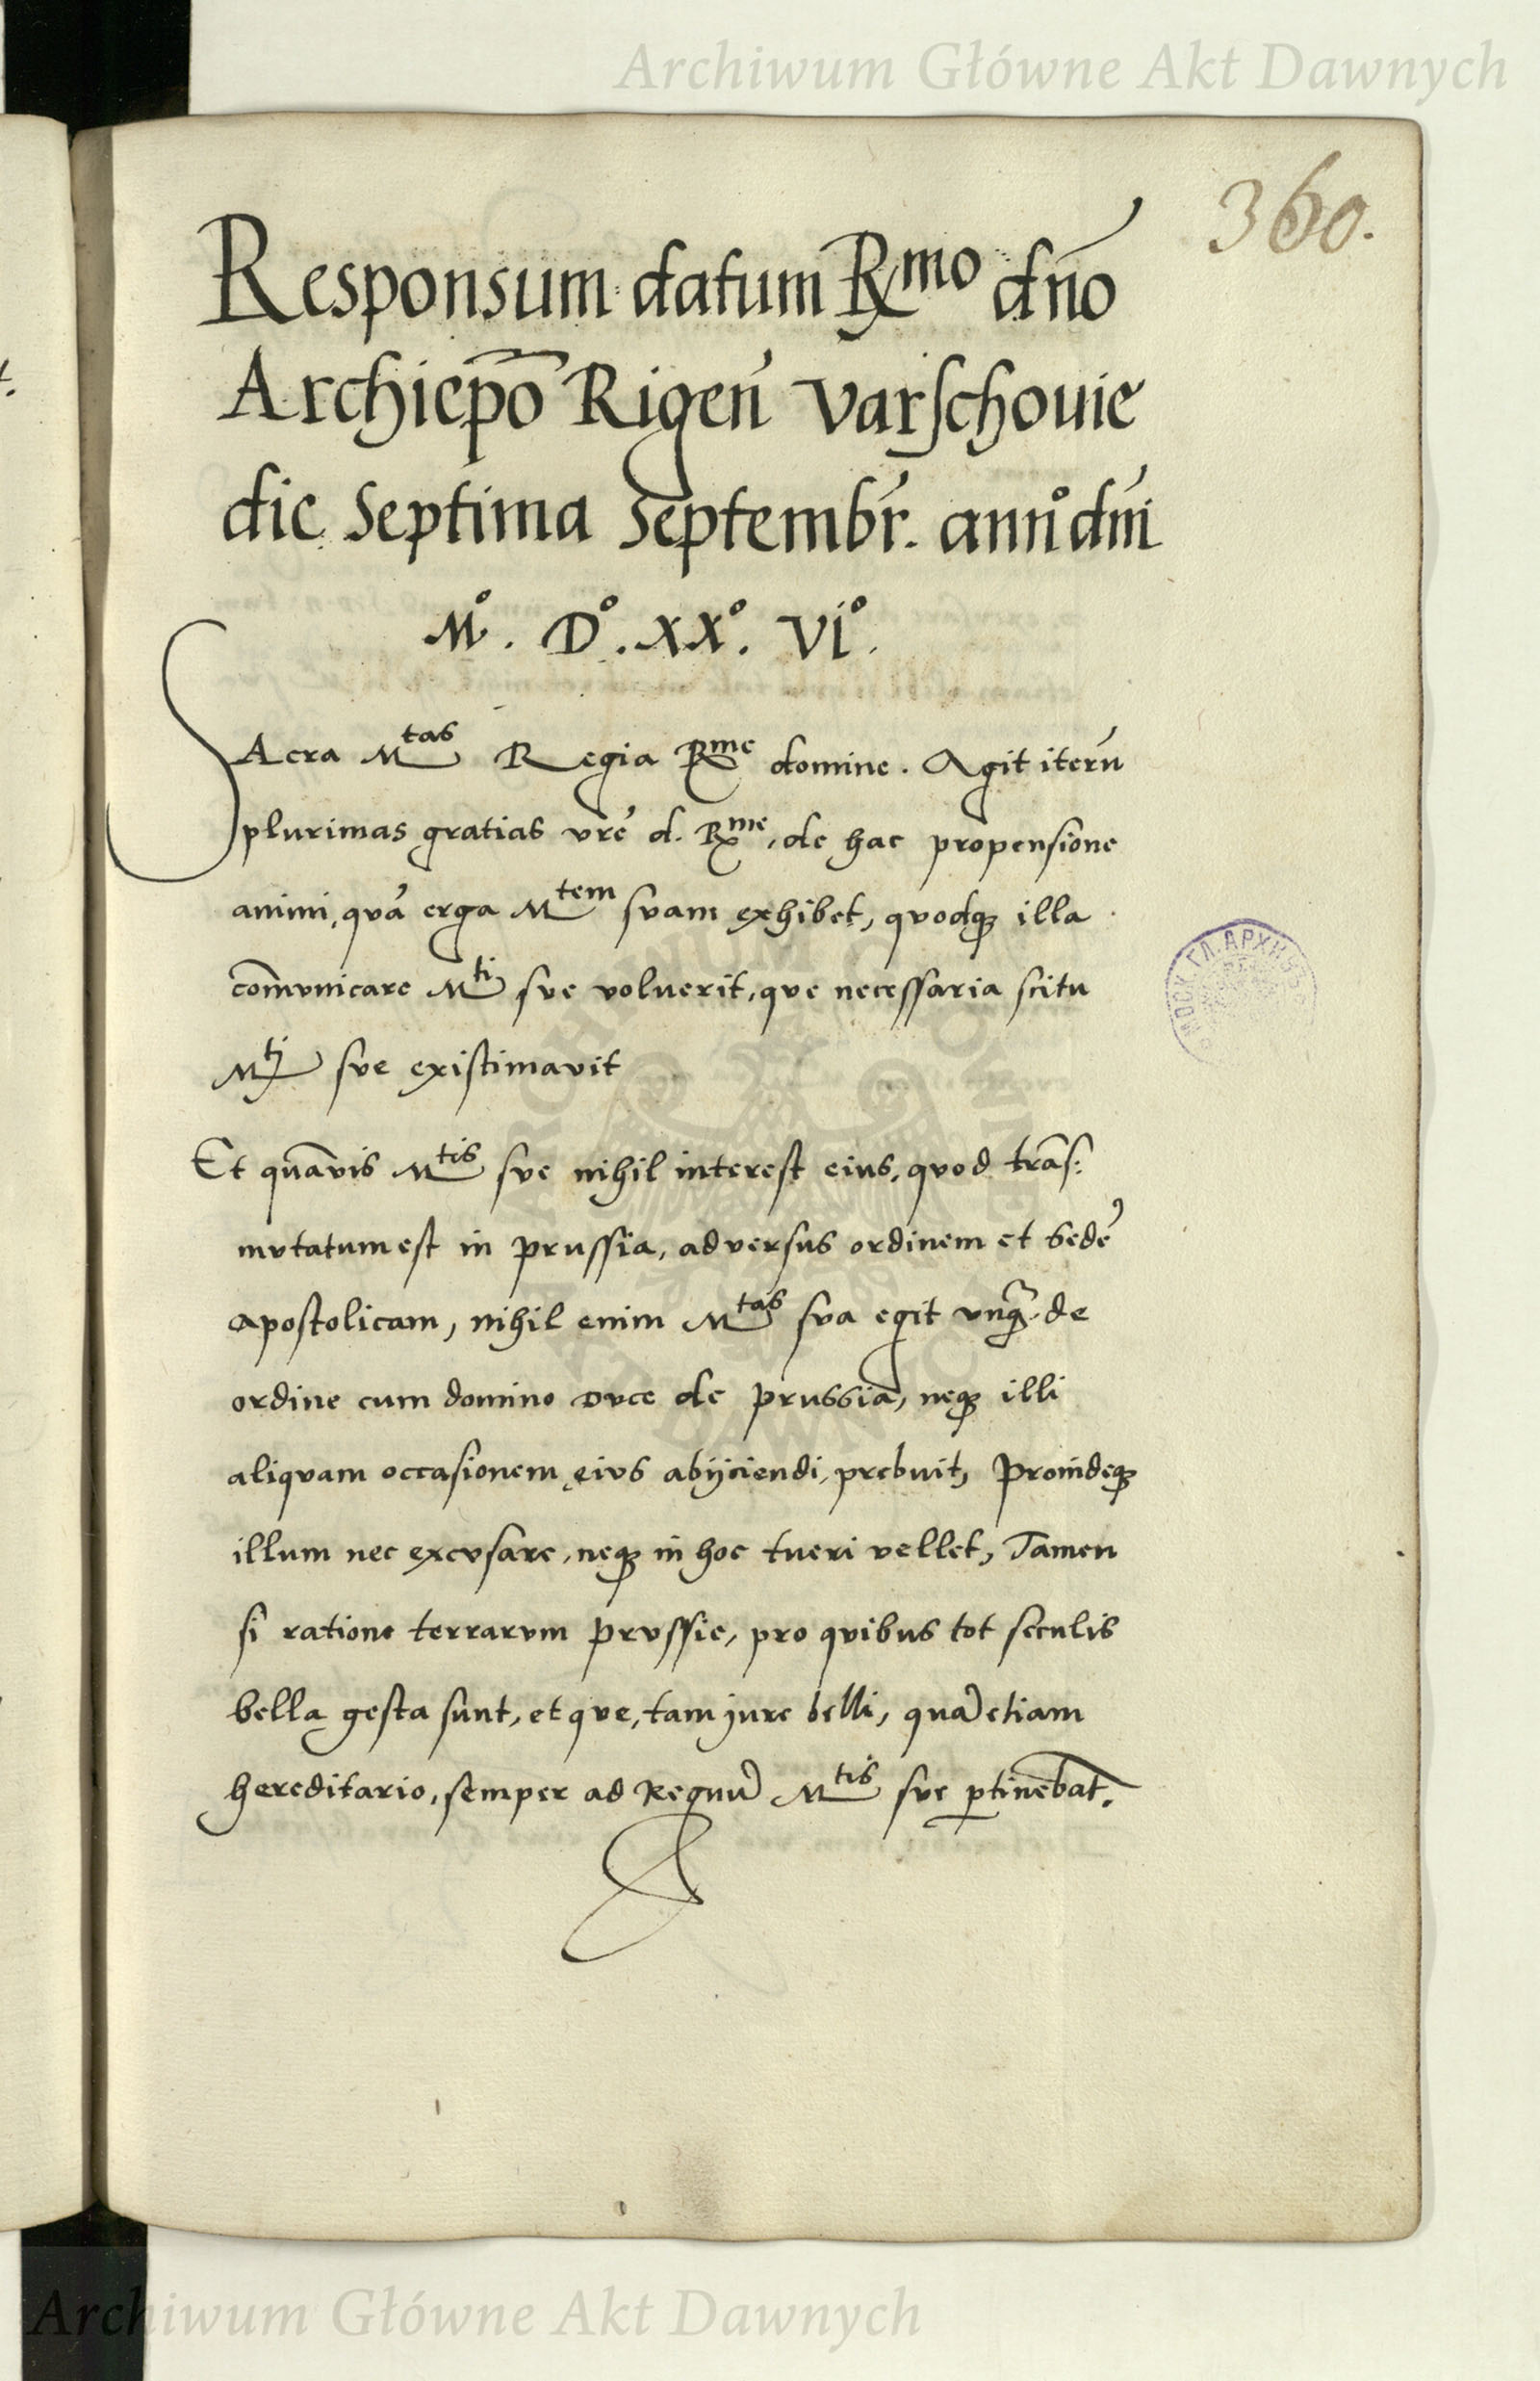 Archiwum Główne Akt Dawnych
360.
Responsum datum Rmo dno
Archiepo Rigen Varschouie
die Septima Septembr. anno dni
Mo. Do. XXo. VIo.
SAcra Mtas Regia Rme domine. Agit iterũ
plurimas gratias vre d. Rme, de hac propensione
animi, quã erga Mtem suam exhibet, quodq illa
comunicare Mti sue voluerit, que necessaria scitu
Mti sue existimavit
Et quãvis Mtis sue nihil interest eius, quod trãs:
mutatum est in prussia, adversus ordinem et sedẽ
apostolicam, nihil enim Mtas sua egit vnq̃. de
ordine cum domino Duce de prussia, neq illi
aliquam occasionem eius abijciendi, prebuit, Proindeq
illum nec excusare, neq in hoc tueri vellet, Tamen
si ratione terrarum prussie, pro quibus tot seculis
bella gesta sunt, et que, tam jure belli, quã etiam
hereditario, semper ad Regnũ Mtis sue ptinebat.
МОСК. ГЛ. АРХИВЪ
ARCHIWUM GŁÓWNE AKT DAWNYCH
Archiwum Główne Akt Dawnych